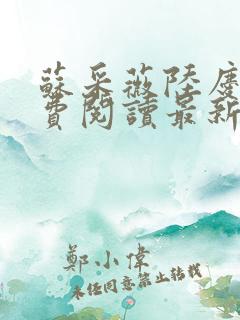 蘇采薇陸
費閱讀最新
鄭小偉
未經同意禁止轉載